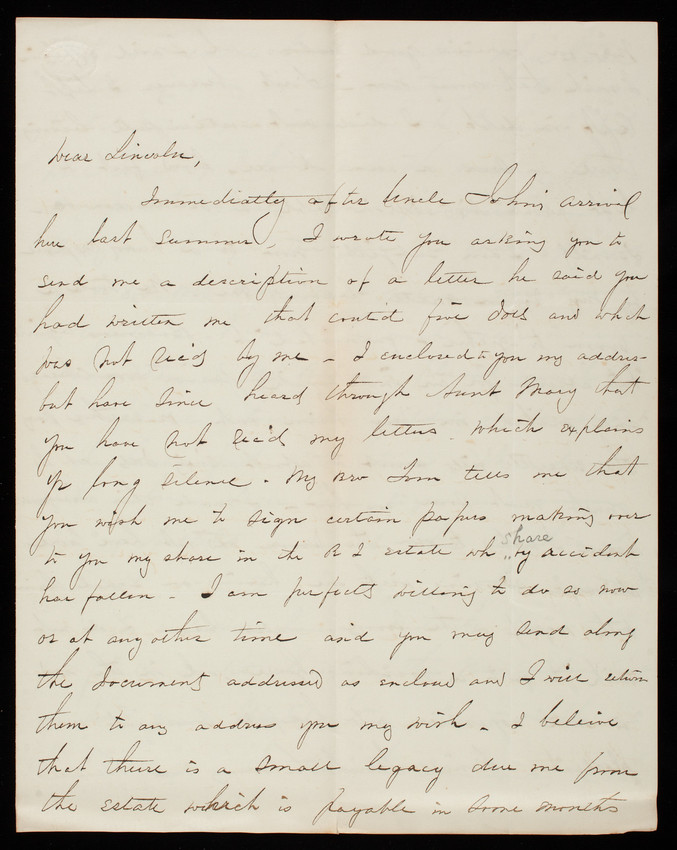 Dear Lincoln,
Immediatly after Uncle John's arrival
here last summer, I wrote you asking you to
send me a description of a letter he said you
had written me that cont'd five dols and which
was not rec'd by me - I enclosed to you my address
but have since heard through Aunt Mary that
you have not rec'd my letters which explains
yr long silence. My Bro Tom tells me that
you wish me to sign certain papers making over
to you my share in the R I estate wh share by accident
has fallen - I am perfectly willing to do so now
or at any other time and you may send along
the documents addressed as enclosed and I will return
them to any address you my wish - I beleive
that there is a small legacy due me from
the estate which is payable in some months